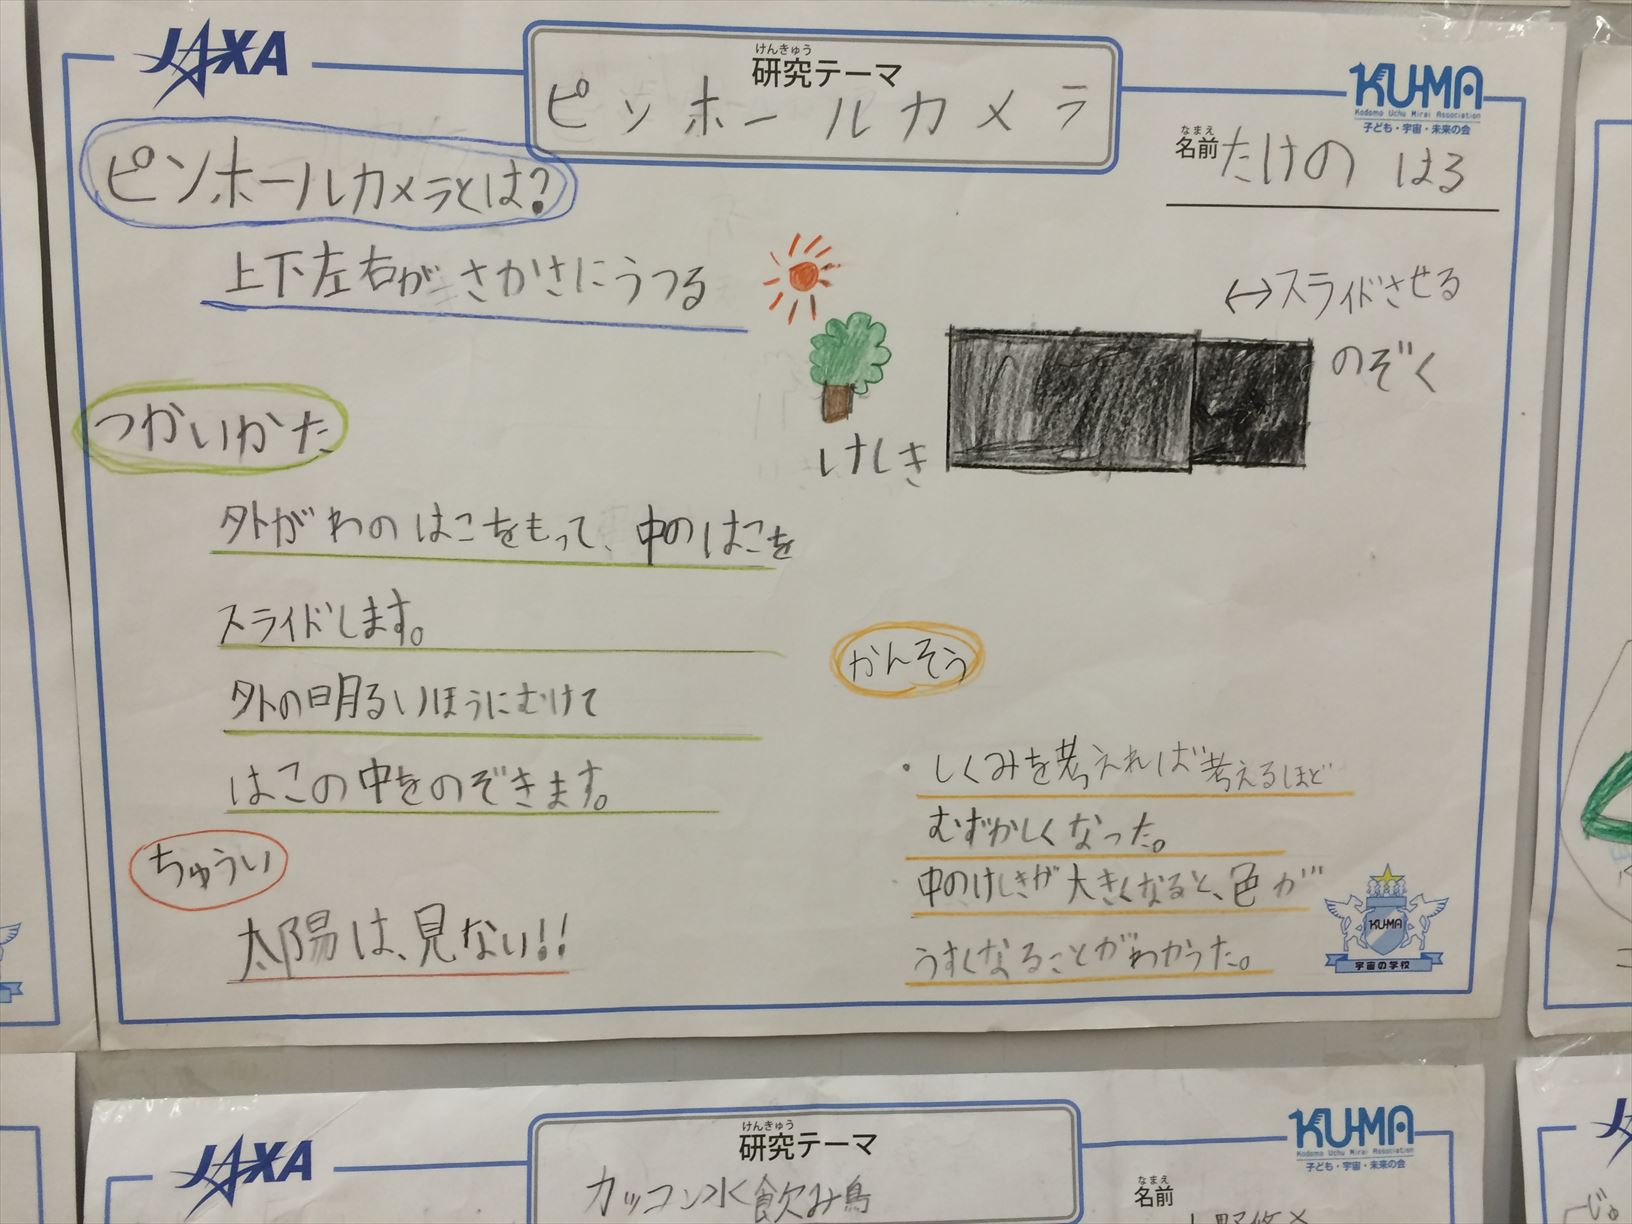 JAXA
けんきゅう
研究テーマ
ピンホールカメラ
KU-MA
Kodomo Uchu Mirai Association
子ども・宇宙・未来の会
なまえ
名前 たけの はる
ピンホールカメラとは?
上下左右がさかさにうつる
↔スライドさせる
のぞく
けしき
つかいかた
外がわのはこをもって、中のはこを
スライドします。
外の明るいほうにむけて
はこの中をのぞきます。
ちゅうい
太陽は、見ない!!
かんそう
・しくみを考えれば考えるほど
むずかしくなった。
中のけしきが大きくなると、色が
うすくなることがわかった。
KU-MA
宇宙の学校
JAXA
けんきゅう
研究テーマ
カッコン水飲み鳥
KU-MA
Kodomo Uchu Mirai Association
子ども・宇宙・未来の会
なまえ
名前